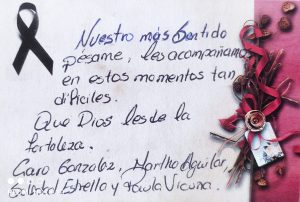 Nuestro más sentido
pésame, les acompañamos
en estos momentos tan
difíciles.
Que Dios les de la
fortaleza.
Caro Gonzalez, Martha Aguilar,
Soledad Estrella y Paula Vicuna.